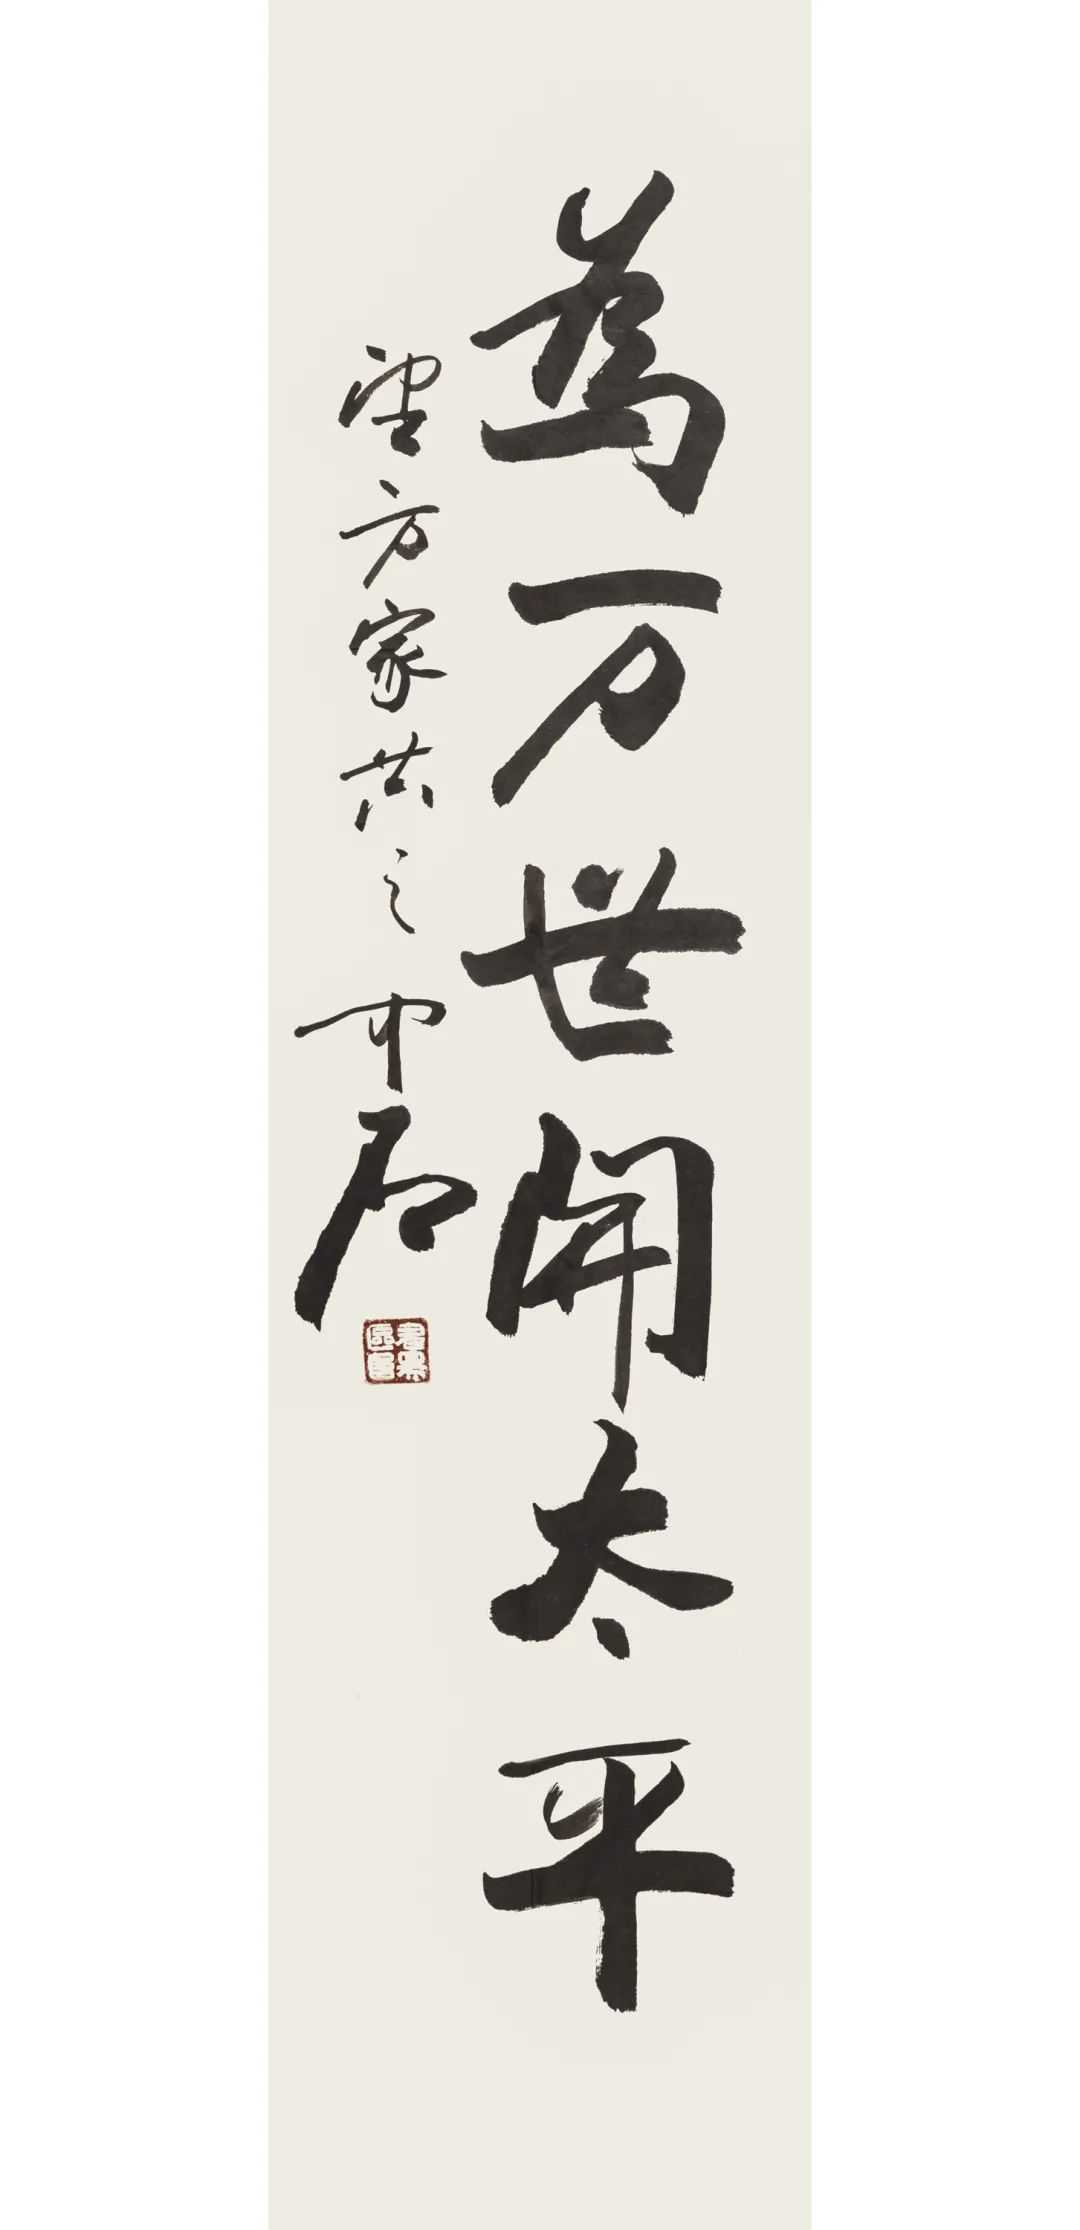 為万世開太平
望方家共之 中石